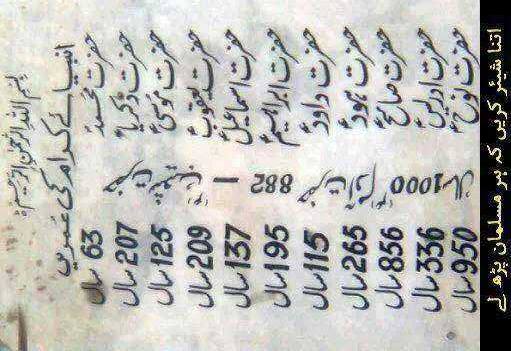 بسم اللہ الرحمن الرحیم
انبیائے کرام کی عمریں
حضرت محمدؐ 63 سال
حضرت زکریاؑ 207 سال
حضرت موسیٰؑ 125 سال
حضرت یعقوبؑ 209 سال
حضرت اسماعیلؑ 137 سال
حضرت ابراہیمؑ 195 سال
حضرت داودؑ 115 سال
حضرت ہودؑ 265 سال
حضرت صالحؑ 856 سال
حضرت ادریسؑ 336 سال
حضرت نوحؑ 950 سال
حضرت آدمؑ 1000 سال
حضرت - 882
اتنا شیئر کریں کہ ہر مسلمان پڑھ لے